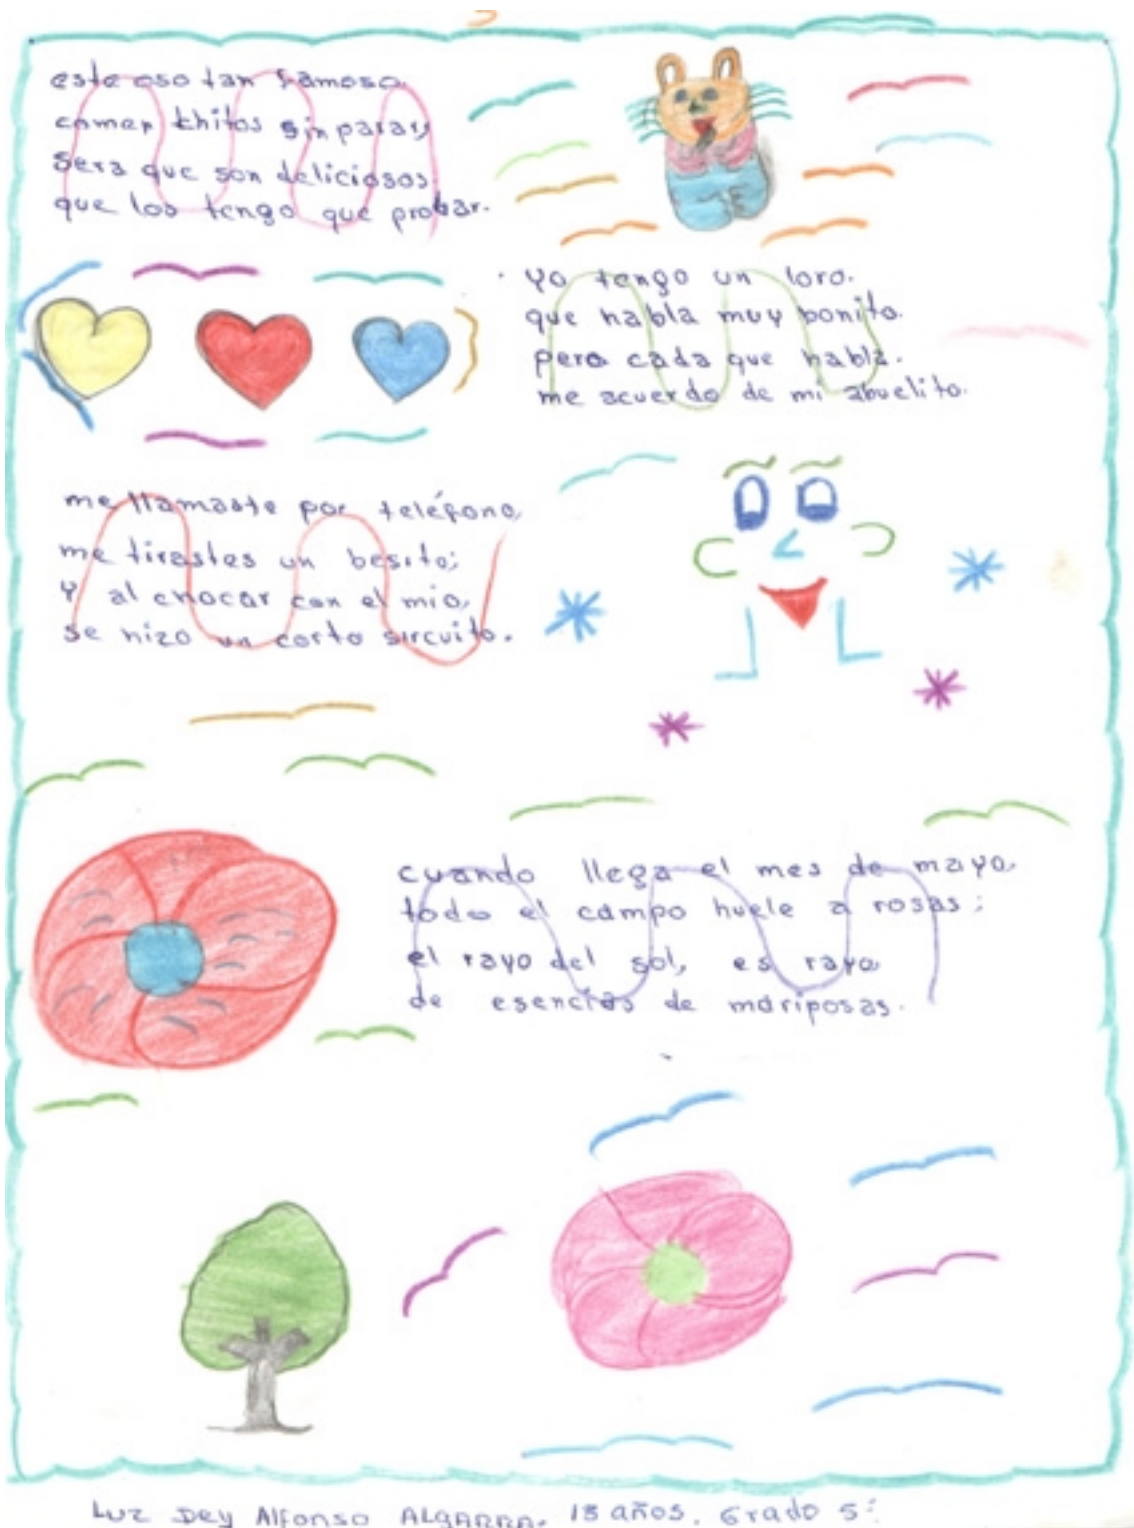 este oso tan famoso.
comen khitos sin parar,
Sera que son deliciosos
que los tengo que probar.
Yo tengo un loro.
que habla muy bonito.
pero cada que habla.
me acuerdo de mi abuelito.
me llamaste por teléfono,
me tirastes un besito;
Y al chocar con el mio,
se hizo un corto sircuito.
cuando llega el mes de mayo.
todo el campo huele a rosas;
el rayo del sol, es rayo
de esencias de mariposas.
Luz Dey Alfonso ALGARRA. 13 años. Grado 5º